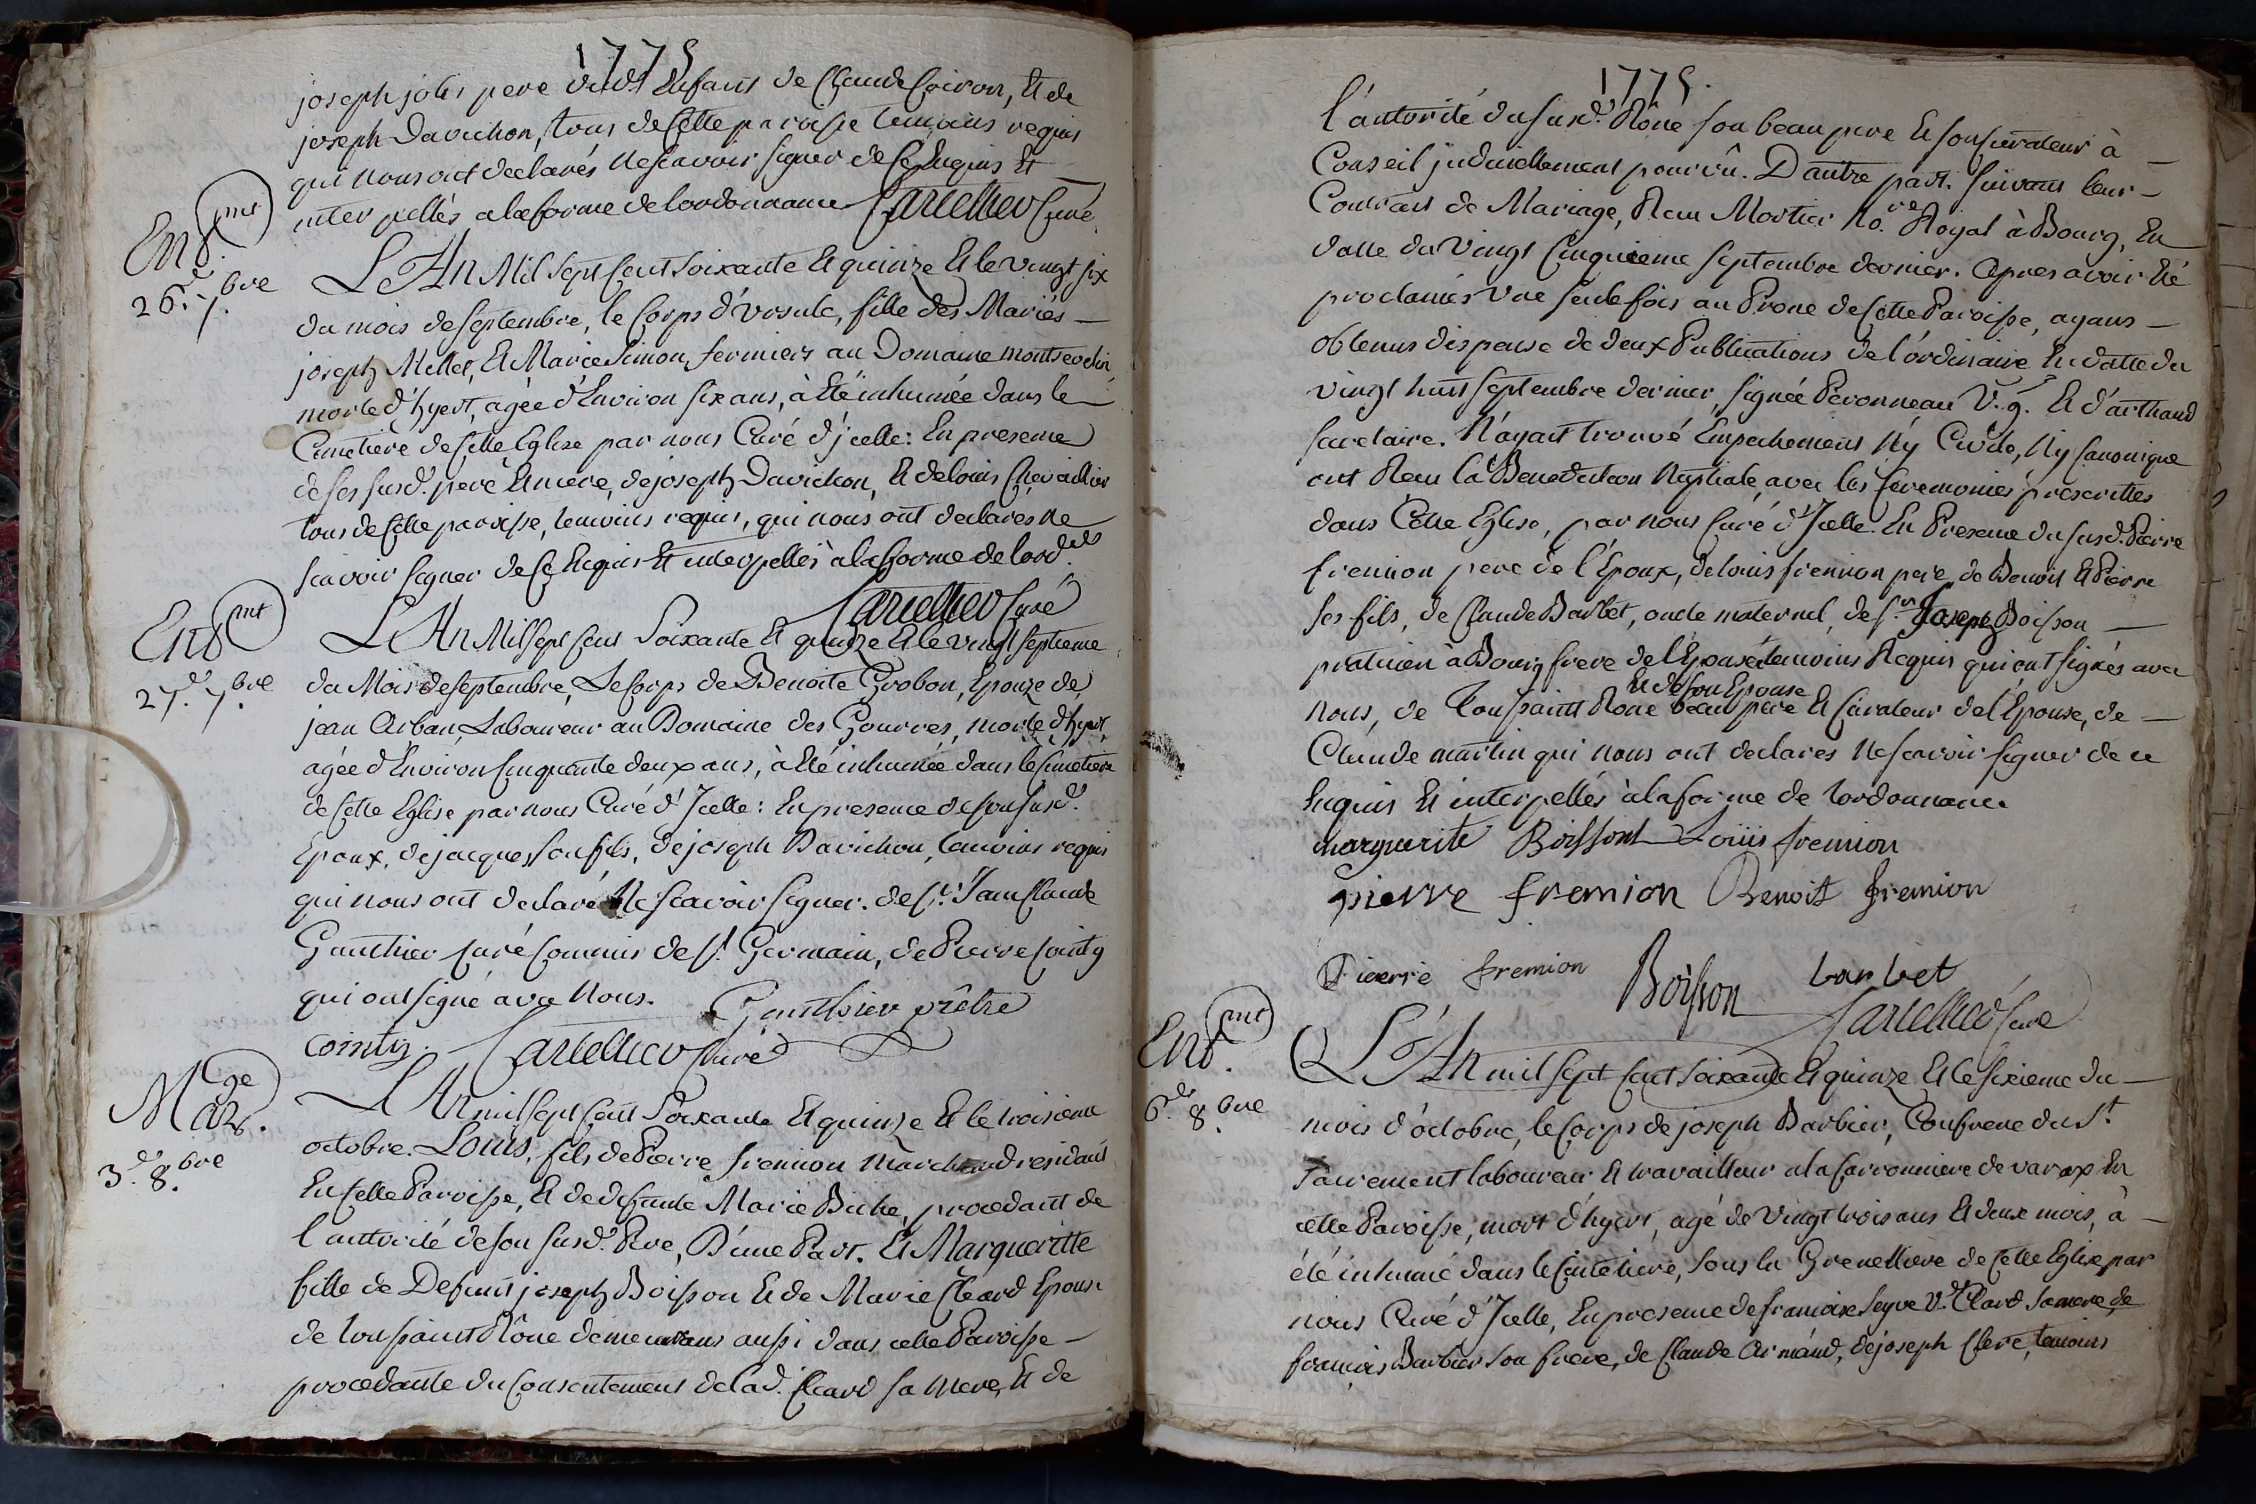 1775
joseph joli pere dud. Enfant de Claude Coiron, Et de
joseph Davichon, tous de Cette paroisse temoins requis
qui nous ont declarés Nescavoir signer de Ce Enquis Et
interpellés a la forme de lordonnance Cartellier Curé
Entmt.
26.e 7.bre
L'An Mil Sept Cent Soixante Et quinze Et le vingt six
du mois de septembre, le Corps d'Ursule, fille des Mariés
joseph Mellet, Et Marie Simon, fermiers au Domaine
morte d'hyert, agée d'Environ six ans, à Eté inhumée dans le
Cimetiere de Cette Eglise par nous Curé d'jcelle: En presence
de ses susd. pere Et mere, de joseph Davichon, Et de louis Chevaillier
tous de Cette paroisse, temoins requis, qui nous ont declarés Ne
scavoir signer de Ce Enquis Et interpellés à la forme de lord.ce
Cartellier Curé
Entmt
27.e 7.bre
L'An Mil Sept Cent Soixante Et quinze Et le vingt septieme
du Mois de Septembre, Le Corps de Benoite Grobon, Epouze de
jean Arban, Laboureur au Domaine des Gourres, morte d'hyert,
agée d'Environ Cinquante deux ans, à Eté inhumée dans le Cimetiere
de Cette Eglise par nous Curé d'Jcelle: En presence de son susd.
Epoux, de jacques son fils, de joseph Davichon, temoins requis
qui nous ont declaré Nescavoir signer. de Sr. Jean Claude
Gauthier Curé Commis de St. Germain, de Pierre Cointy
qui ont signé avec Nous. Gauthier prêtre
Cointy. Cartellier Curé
Marge.
3.e 8.bre
L'An mil Sept Cent Soixante Et quinze Et le troisieme
octobre. Louis, fils de Pierre fremion Marchand residant
En Cette Paroisse, Et de defunte Marie Biche, procedant de
l'authorité de son susd. Pere, D'une Part. Et Margueritte
fille de Defunt joseph Boisson Et de Marie Cleard Epouse
de toussaint Rône demeurans aussi dans cette Paroisse
procedante du Consentement de lad. Cleard sa Mere, Et de
1775.
l'autorité du susd. Rône son beau pere Et son Curateur à
Conseil judiciellement pourvû. D'autre part. Suivant leur
Contrat de Mariage, Reçu Mortier No.re Royal à Bourg, En
datte du vingt Cinquieme Septembre dernier. Apres avoir Eté
proclamés Une seule fois au Prone de Cette Paroisse, ayans
obtenus dispense de deux Publications de l'ordinaire En datte du
vingt huit Septembre dernier, signée Peronneau V. g. Et d'arthaud
secretaire. N'ayant trouvé Empechement Ny Civile, Ny Canonique
ont Reçu la Benediction Nuptiale, avec les Ceremonies prescrittes
dans Cette Eglise, par nous Curé d'Jcelle. En Presence du susd. Pierre
fremion pere de l'Epoux, de louis fremion pere de Benoit Et Pierre
ses fils, de Claude Barbet, oncle maternel, de Sr. Joseph Boisson
praticien à Bourg frere de l'Epouse temoins Requis qui ont signés avec
Et de son Epouse
nous, de Toussaint Rone beau pere Et Curateur de l'Epouse, de
Claude martin qui nous ont declares Nescavoir signer de ce
Enquis Et interpellés à la forme de lordonnance
marguerite Boissont Loüis fremion
pierre fremion Benoit fremion
Pieerre fremion Boisson barbet
Cartellier Curé
Entmt.
6.e 8.bre
L'An mil Sept Cent Soixante Et quinze Et le sixieme du
mois d'octobre, le Corps de joseph Barbier, Confrere du St.
Sacrement laboureur Et travailleur a la Carronniere de varax En
cette Paroisse, mort d'hyert, agé de vingt trois ans Et deux mois, à
été inhumé dans le Cimetiere, sous la Grenettiere de Cette Eglise par
nous Curé d'Jcelle, En presence de francoise Seyve V.e Clard sa mere, de
françois Barbier son frere, de Claude Armand, de joseph Clere, temoins